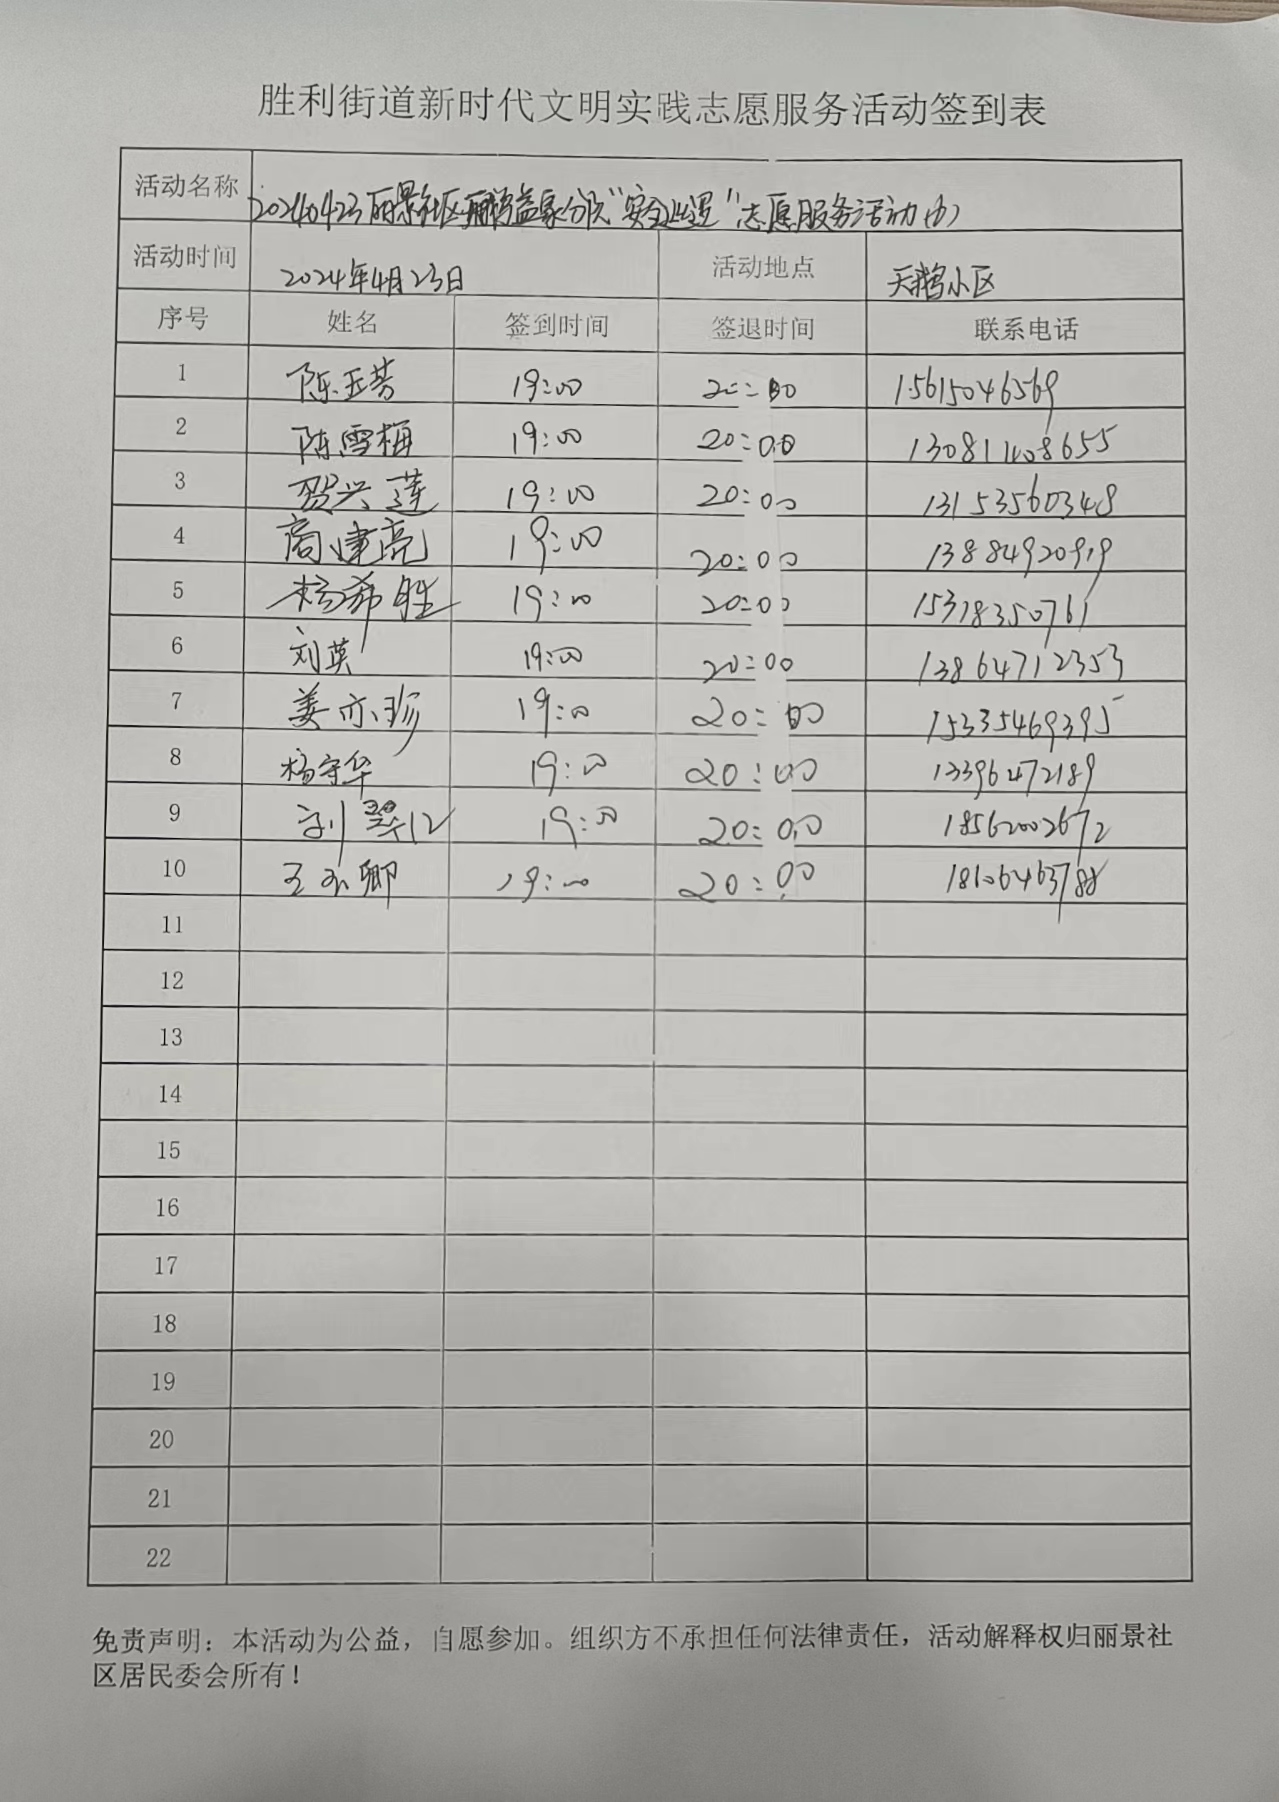 胜利街道新时代文明实践志愿服务活动签到表
活动名称 20240423丽景社区益家分队“安全巡逻”志愿服务活动
活动时间 2024年4月23日 活动地点 天鹅小区
序号 姓名 签到时间 签退时间 联系电话
1 陈玉芳 19:00 20:00 15615046569
2 陈雪梅 19:00 20:00 13081408655
3 贺兴莲 19:00 20:00 13153560348
4 高建亮 19:00 20:00 13884920919
5 杨希胜 19:00 20:00 15318350761
6 刘英 19:00 20:00 13864712353
7 姜亦珍 19:00 20:00 15335469395
8 杨守华 19:00 20:00 13396472189
9 刘翠 19:00 20:00 18562002672
10 王玉卿 19:00 20:00 18106463788
11
12
13
14
15
16
17
18
19
20
21
22
免责声明：本活动为公益，自愿参加。组织方不承担任何法律责任，活动解释权归丽景社
区居民委会所有！